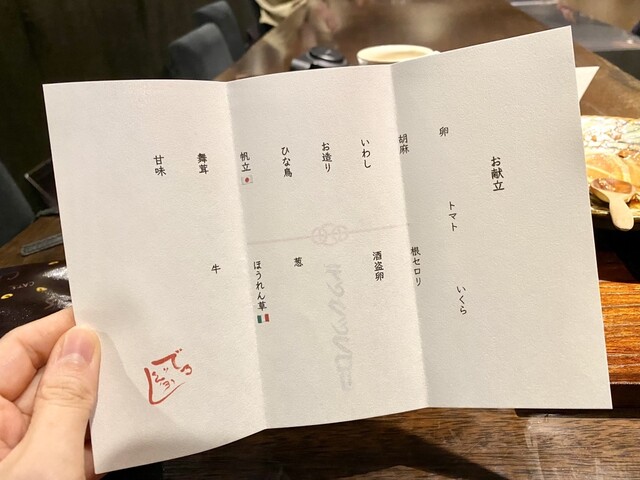 お献立
卵 トマト いくら
胡麻 根セロリ
いわし 酒盗卵
お造り
ひな鳥 葱
帆立 ほうれん草
舞茸 牛
甘味